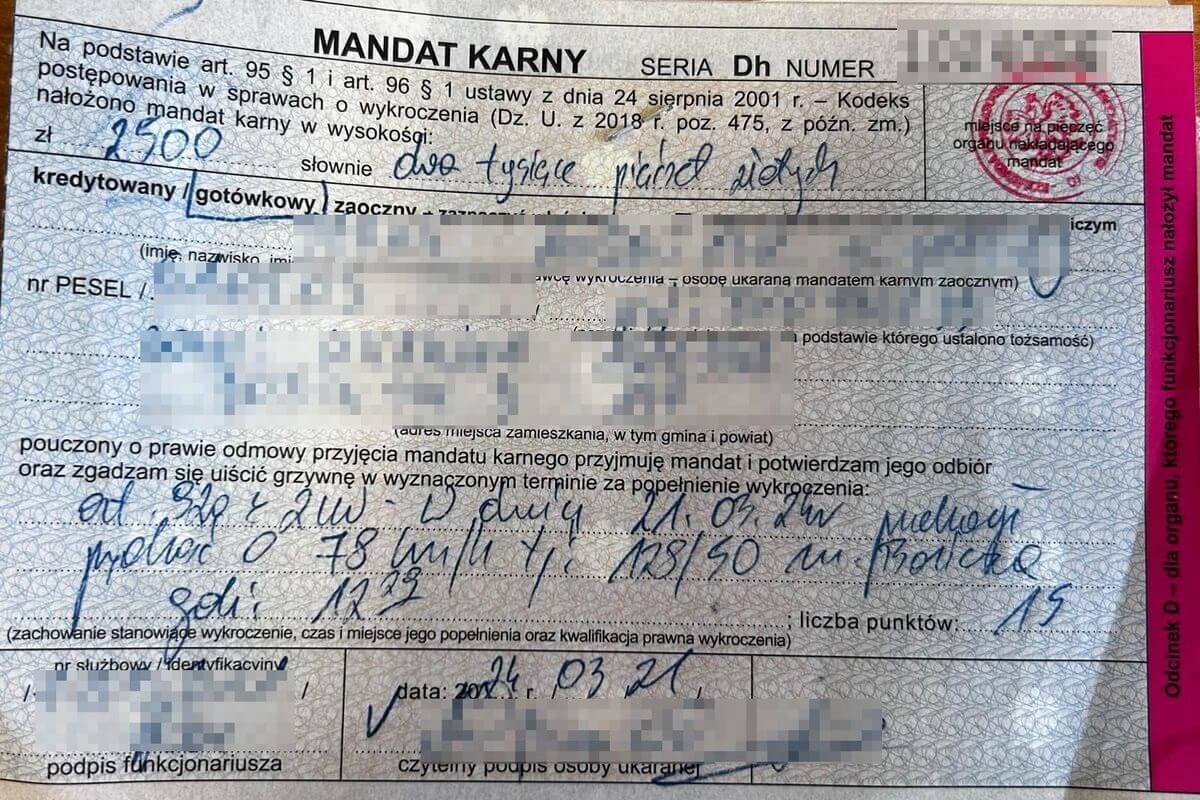 MANDAT KARNY SERIA Dh NUMER
Na podstawie art. 95 § 1 i art. 96 § 1 ustawy z dnia 24 sierpnia 2001 r. – Kodeks
postępowania w sprawach o wykroczenia (Dz. U. z 2018 r. poz. 475, z późn. zm.)
nałożono mandat karny w wysokości:
miejsce na pieczęć
organu nakładającego
mandat
zł 2500 słownie dwa tysiące pięćset złotych
kredytowany / gotówkowy / zaoczny
iczym
(imię, nazwisko, imi
wcę wykroczenia – osobę ukaraną mandatem karnym zaocznym)
nr PESEL /
podstawie którego ustalono tożsamość)
(adres miejsca zamieszkania, w tym gmina i powiat)
pouczony o prawie odmowy przyjęcia mandatu karnego przyjmuję mandat i potwierdzam jego odbiór
oraz zgadzam się uiścić grzywnę w wyznaczonym terminie za popełnienie wykroczenia:
W dniu 21.03.24r
prędkość o 78 km/h tj: 128/50 m.
godz: 12 29 ; liczba punktów: 15
(zachowanie stanowiące wykroczenie, czas i miejsce jego popełnienia oraz kwalifikacja prawna wykroczenia)
nr służbowy / identyfikacyjny
/ /
data: 2024 r. 03 21
podpis funkcjonariusza
czytelny podpis osoby ukaranej
Odcinek D – dla organu, którego funkcjonariusz nałożył mandat